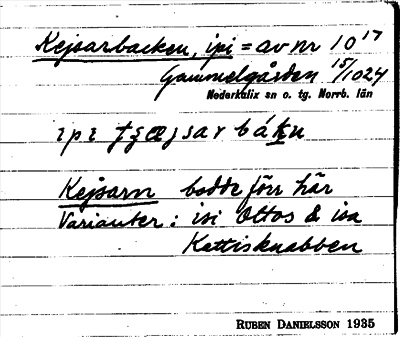 Kejsarbacken, ipi = av nr 10¹⁷
Gammelgården 15/1024
Nederkalix sn o. tg. Norrb. län
ɪpɪ
Kejsarn bodde förr här
Varianter: isi Oltos & isa
Kattisknabben
RUBEN DANIELSSON 1935